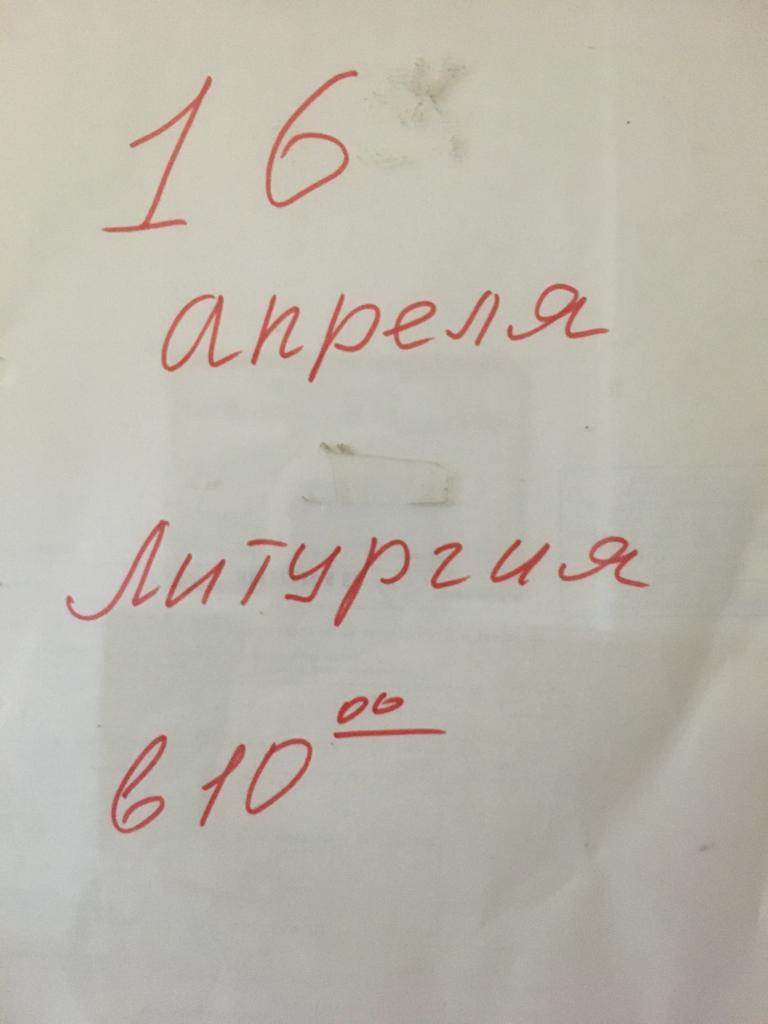 16
апреля
Литургия
в 10 00